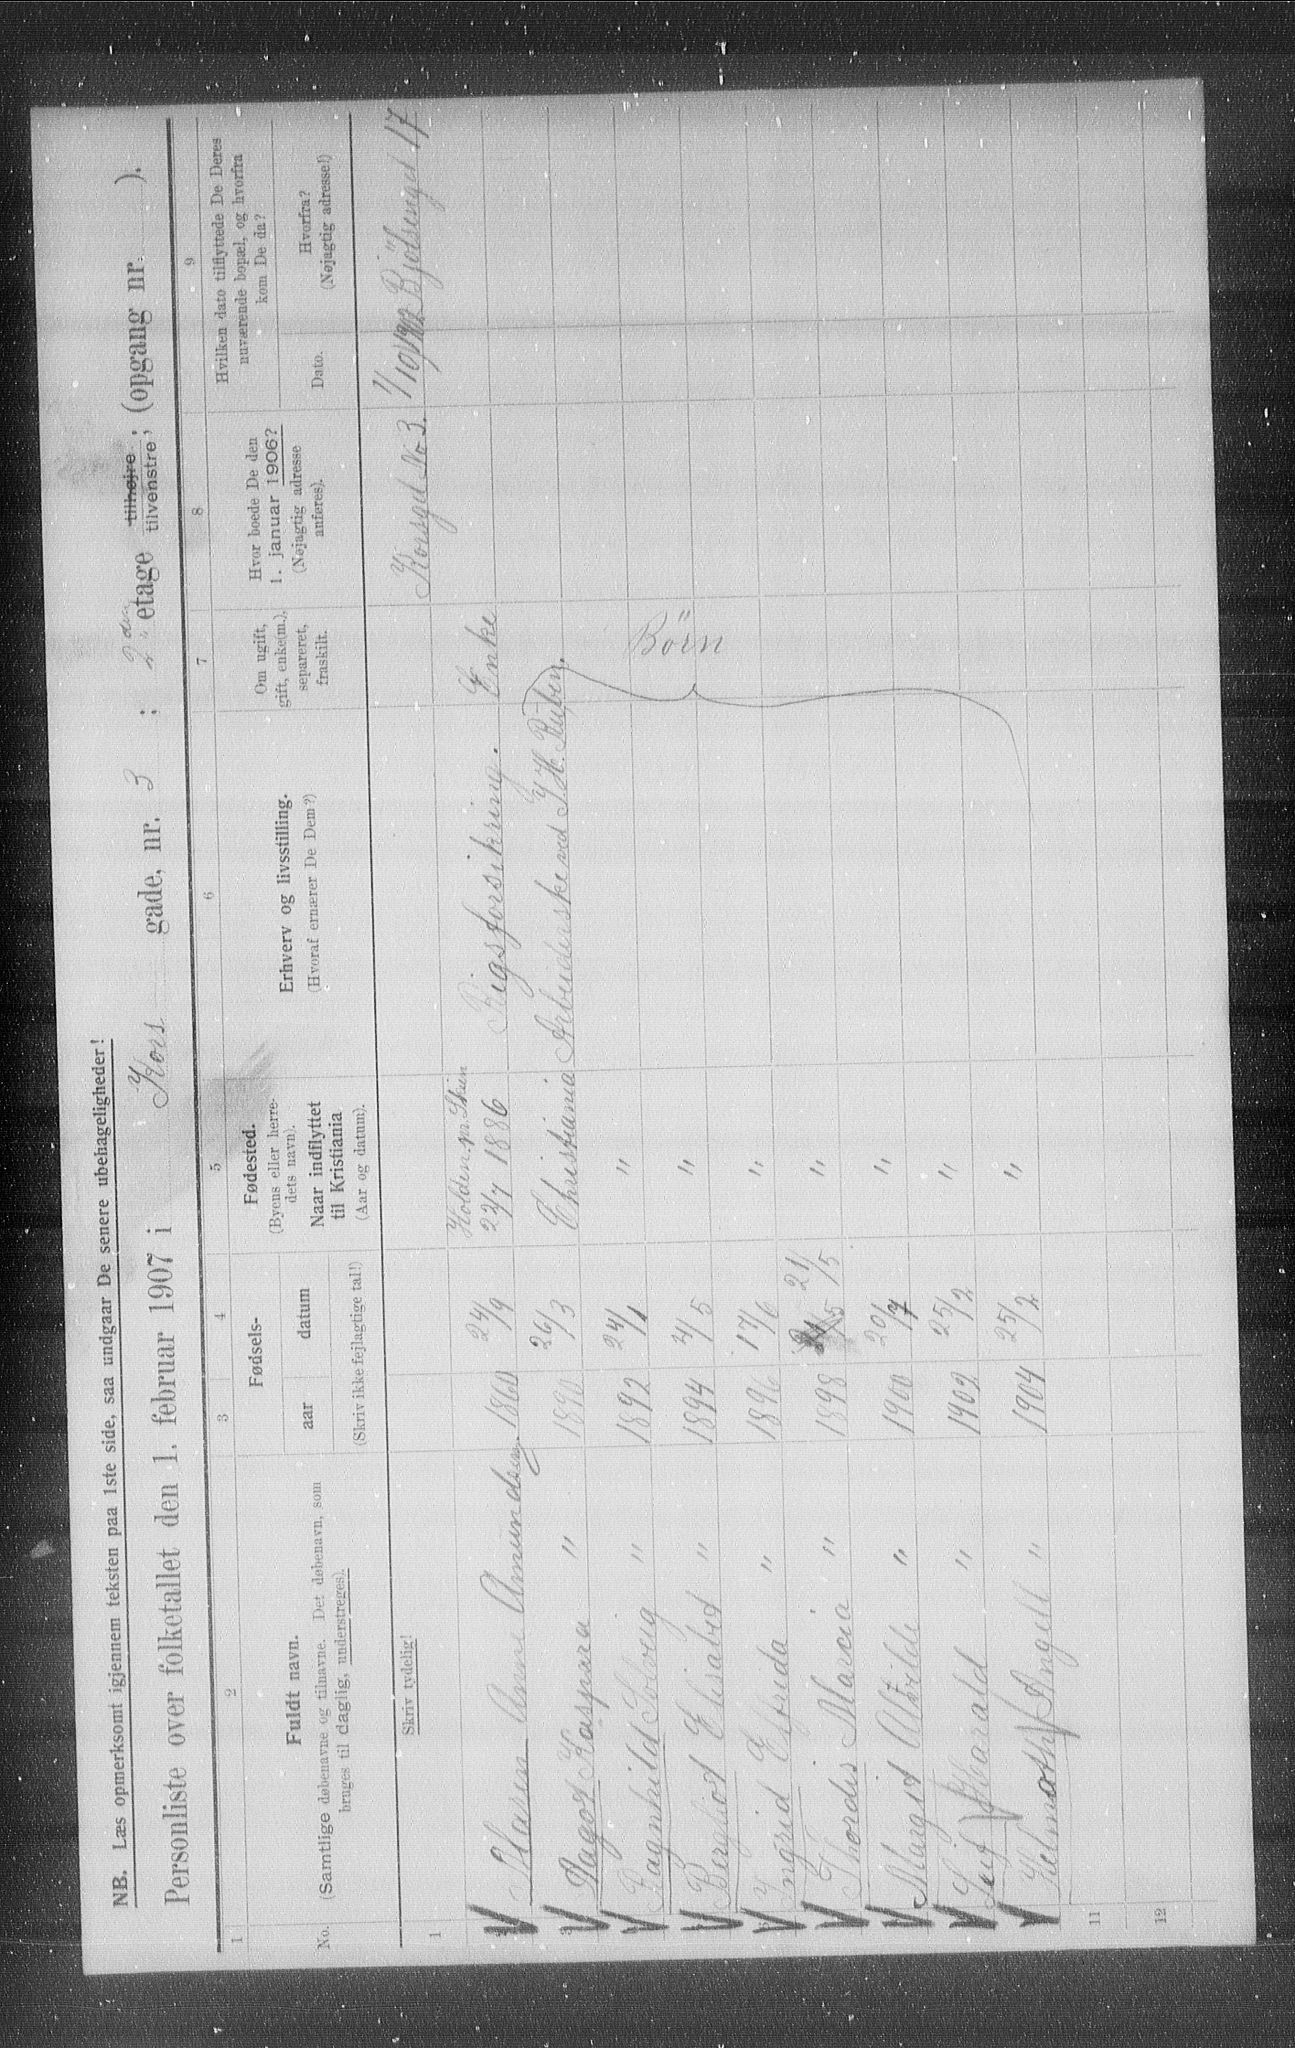 NB. Læs opmerksomt igjennem teksten paa 1ste side, saa undgaar De senere ubehageligheder!
Personliste over folketallet den 1. februar 1907 i Kors gade, nr. 3 ; 2den etage tilhøjre, tilvenstre, (opgang nr. ).
1 2 3 4 5 6 7 8 9
No.
Fuldt navn.
(Samtlige døbenavne og tilnavne. Det døbenavn, som
bruges til daglig, understreges).
Fødsels-
aar datum
(Skriv ikke fejlagtige tal!)
Fødested.
(Byens eller herre-
dets navn).
Naar indflyttet
til Kristiania
(Aar og datum).
Erhverv og livsstilling.
(Hvoraf ernærer De Dem?)
Om ugift,
gift, enke(m.),
separeret,
fraskilt.
Hvor boede De den
1. januar 1906?
(Nøjagtig adresse
anføres).
Hvilken dato tilflyttede De Deres
nuværende bopæl, og hvorfra
kom De da?
Dato.
Hvorfra?
(Nøjagtig adresse!)
Skriv tydelig!
1 Korsgd No 3. 1/10 1902 Bjölsengd 17
Holden pr. Skien
Maren Anne Amundsen. 1860 24/9 22/7 1886 Rigsforsikring. Enke
3 Dagot Kaspara " 1890 26/3 Christiania Arbeiderske ved J. H. Rüben.
Ragnhild Solveig " 1892 24/1 "
Bergliot Elisabet " 1894 4/5 " Börn
6 Ingrid Elfrida " 1896 17/6 "
Thordis Maria " 1898 21/5 21/5 "
Margit Alvilde " 1900 20/7 "
Leif Harald " 1902 25/2 "
Helmoth Angell " 1904 25/2 "
11
12